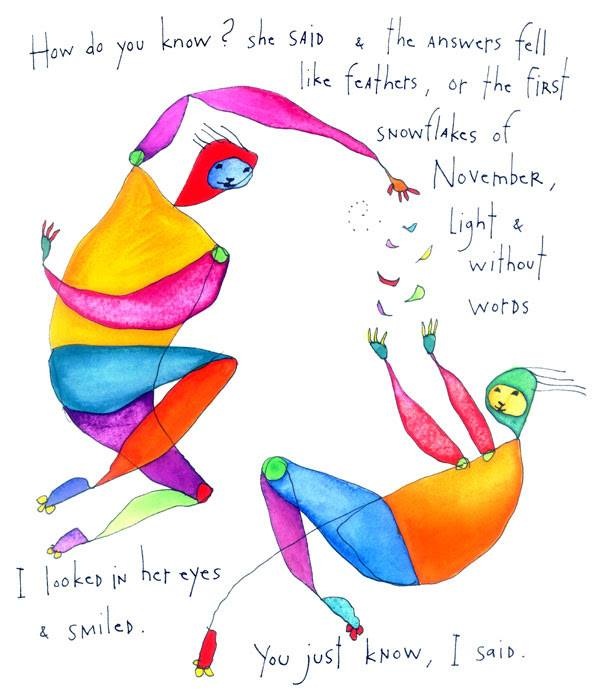 How do you know? she said & the answers fell
like feathers, or the first
snowflakes of
November,
Light &
without
words
I looked in her eyes
& smiled.
You just know, I said.